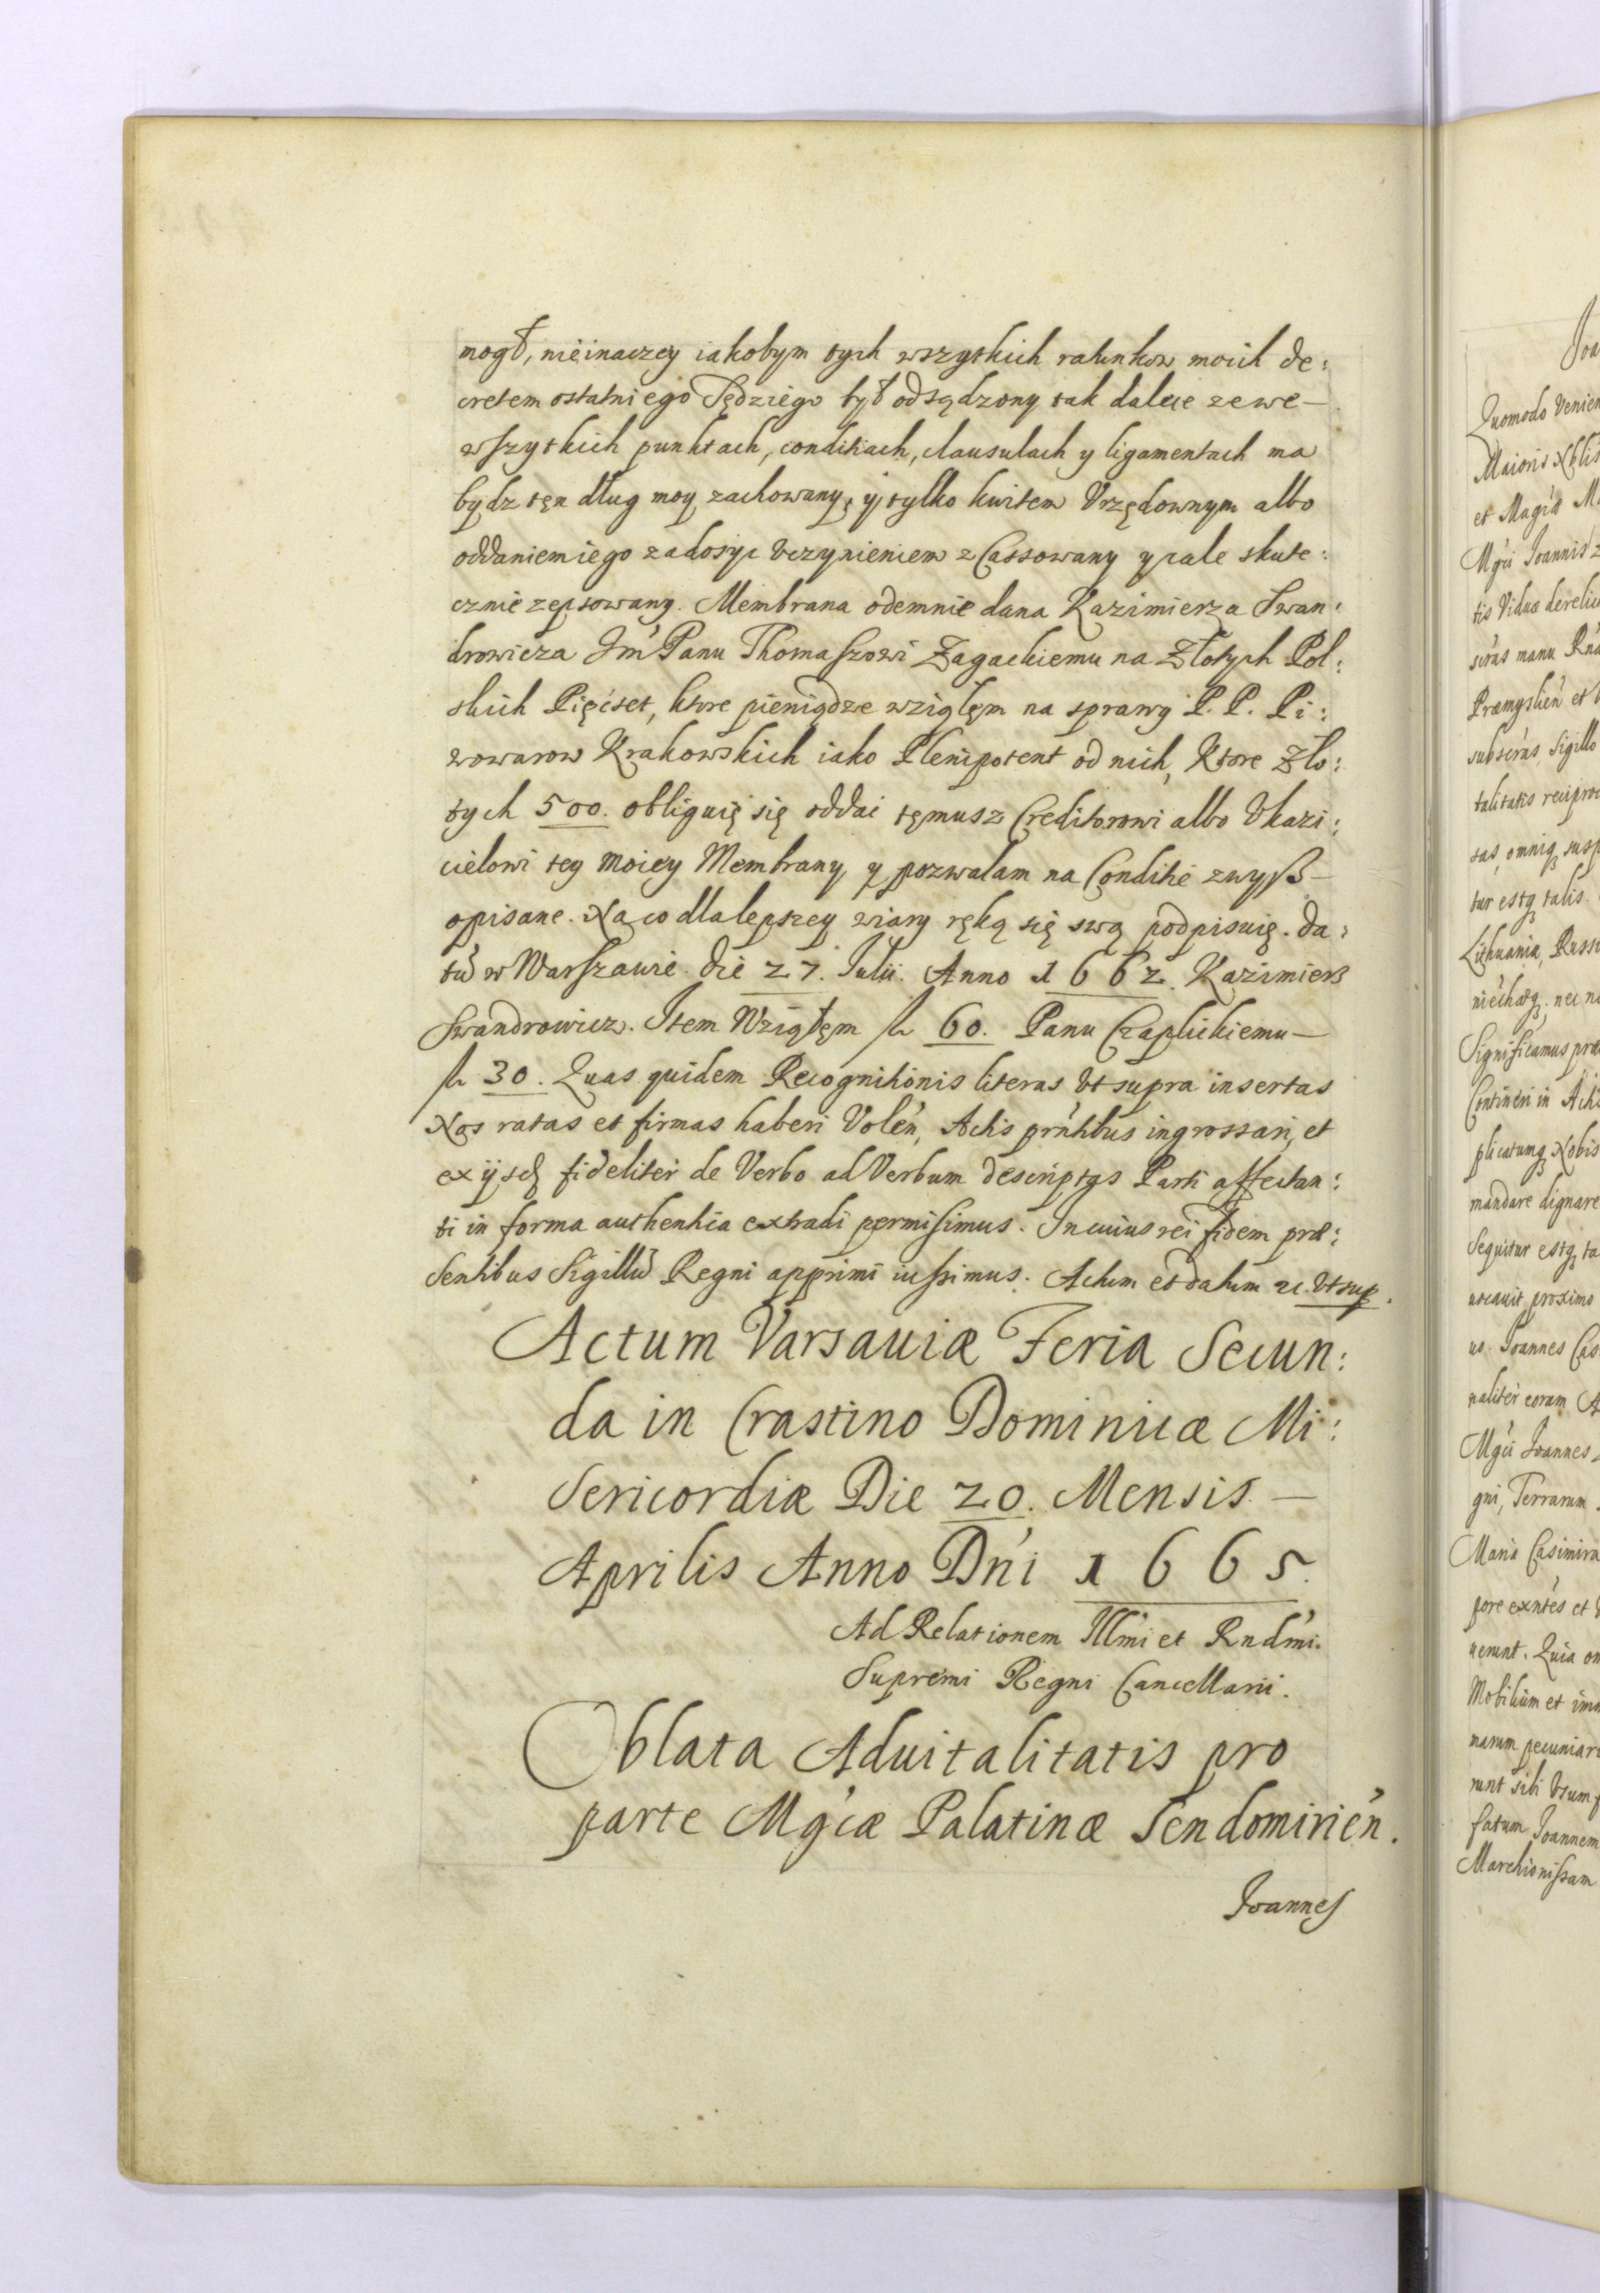 mogł, nieinaczey iakobym tych wszytkich ratunkow moich de:
cretem ostatniego Sędziego był odsądzony tak dalece zewe—
wszytkich punktach, conditiach, clausulach y ligamentach ma
bydz tęn dług moy zachowany, y tylko kwitem Vrzędownym albo
oddaniem iego zadosyc Vczynieniem zCassowany y cale skute:
cznie zepsowany. Membrana odemnie dana Kazimierza Swan:
drowicza Jm̃ Panu Thomaszowi Zagackiemu na Złotych Pol:
skich Pięćset, ktore pieniądze wziąłęm na sprawy P. P. Pi:
wowarow Krakowskich iako Plenipotent od nich, Ktore Zło:
tych 500. obliguię się oddac tęmusz Creditorowi albo Vkazi:
cielowi tey moiey Membrany, y pozwalam na Conditie zwyß—
opisane. Na co dla lepszey wiary ręką się swą podpisuię. Da:
tũ w Warszawie die 27. Julii. Anno 1662. Kazimierz
Swandrowicz. Item Wziąłęm fl 60. Panu Czaplickiemu—
fl 30. Quas quidem Recognitionis literas Vt supra insertas
Nos ratas et firmas haberi Volen̄, Actis prn̄tibus ingrossari, et
ex ijsdẽ fideliter de Verbo ad Verbum descriptas Parti affectan:
ti in forma authentica extradi permisimus. In cuius rei fidem præ:
sentibus Sigillũ Regni apprimi iussimus. Actum et datum ut. Vt sup.
Actum Varsauiæ Feria Secun:
da in Crastino Dominicæ Mi:
sericordiæ Die 20. Mensis—
Aprilis Anno Dn̄i 1665.
Ad Relationem Illmi et Rndmi.
Supremi Regni Cancellarii.
Oblata Aduitalitatis pro
parte Mg̃cæ Palatinæ Sendomirien̄.
Joannes
Quomodo Venien
Maioris Nbli
Mg̃ci Joannis
tis Vidua derelic
subscras, Sigillo
talitatis recipro
tur estq̃ talis.
Lithuaniæ, Russi
Significamus præ
Contineri in Acti
plicatumq̃ Nobis
mandare dignare
Sequitur estq̃ ta
proximo
us. Joannes Cas
naliter coram A
Mg̃ci Joannes
gni, Terrarum
Maria Casimira
uerunt. Quia om
Mobilium et imm
narum pecuniar
runt sibi Vsum f
fatum Joannem
Marchionissam